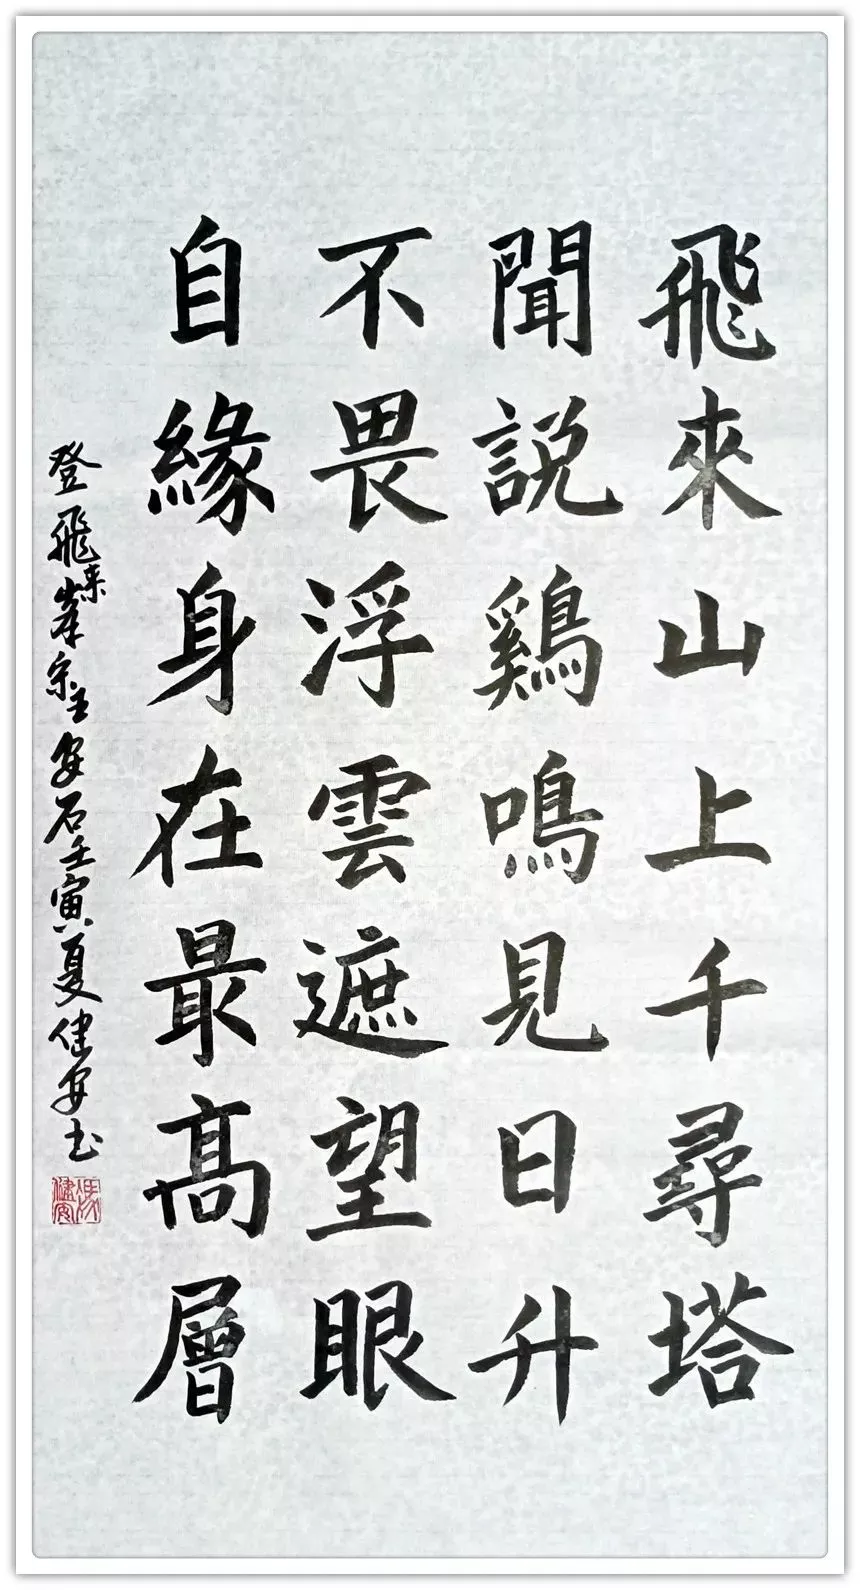 飛來山上千尋塔
聞說鷄鳴見日升
不畏浮雲遮望眼
自緣身在最高層
登飛来峯宋王安石壬寅夏健安书